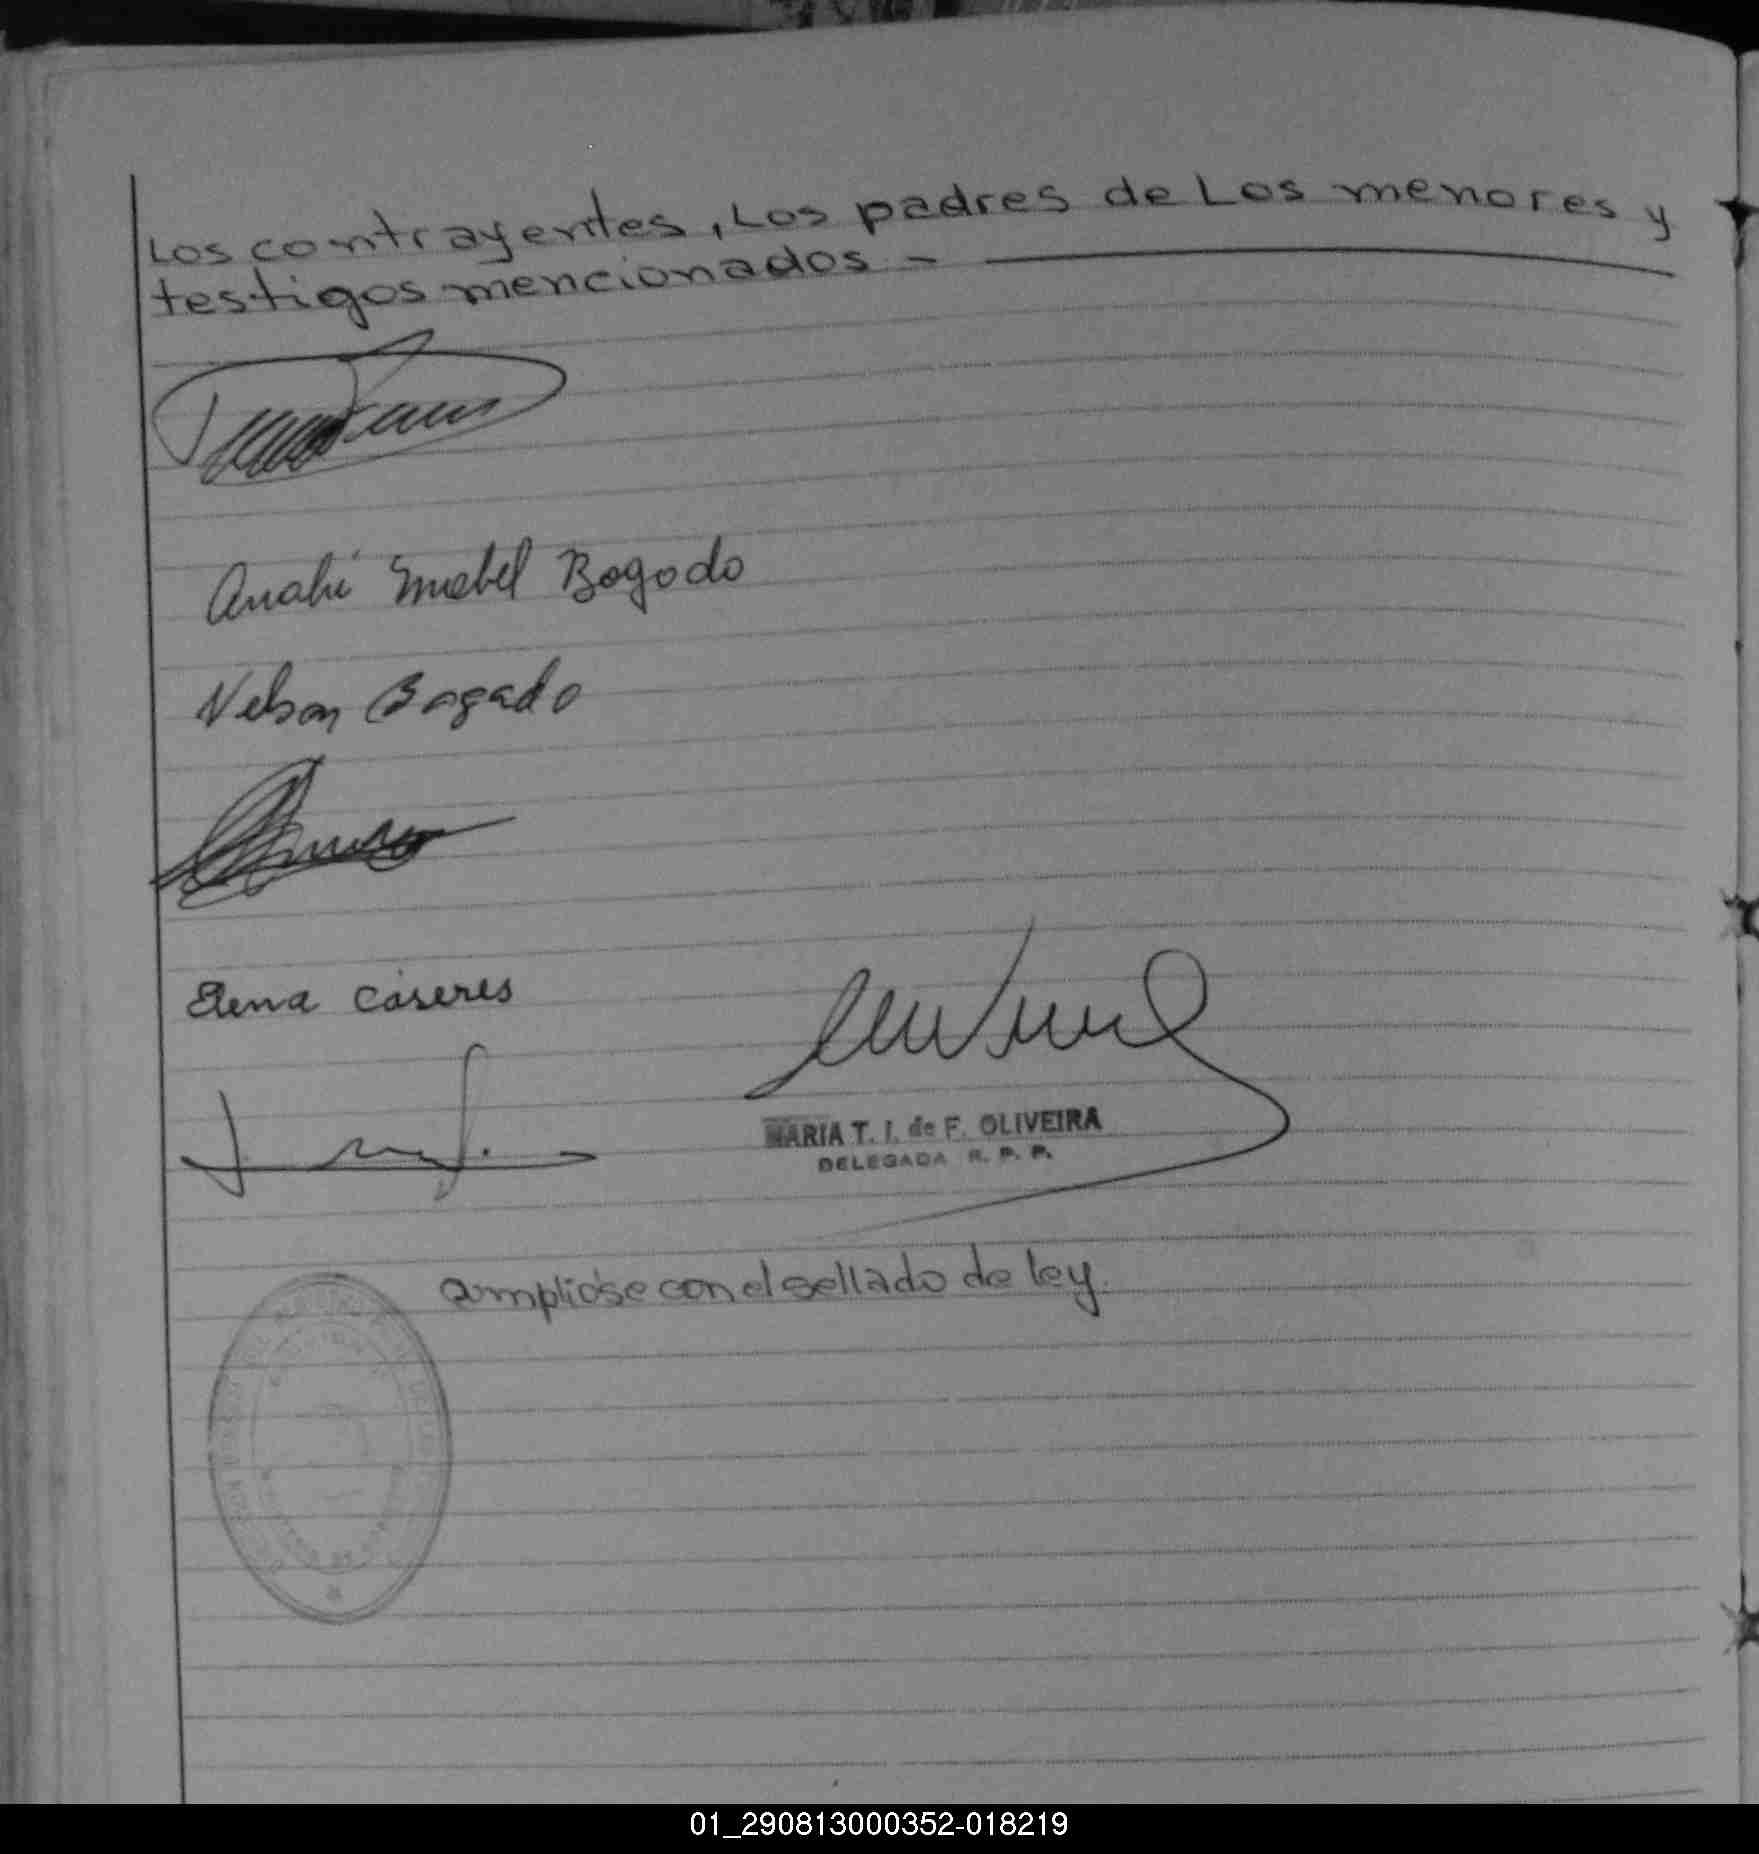 Los contrayentes, Los padres de Los menores y
testigos mencionados -
Anahí Mabel Bogado
Nelson Bogado
Elena Cáseres
MARIA T. I. de F. OLIVEIRA
DELEGADA R. P. P.
Cumplióse con el sellado de ley.
01_290813000352-018219